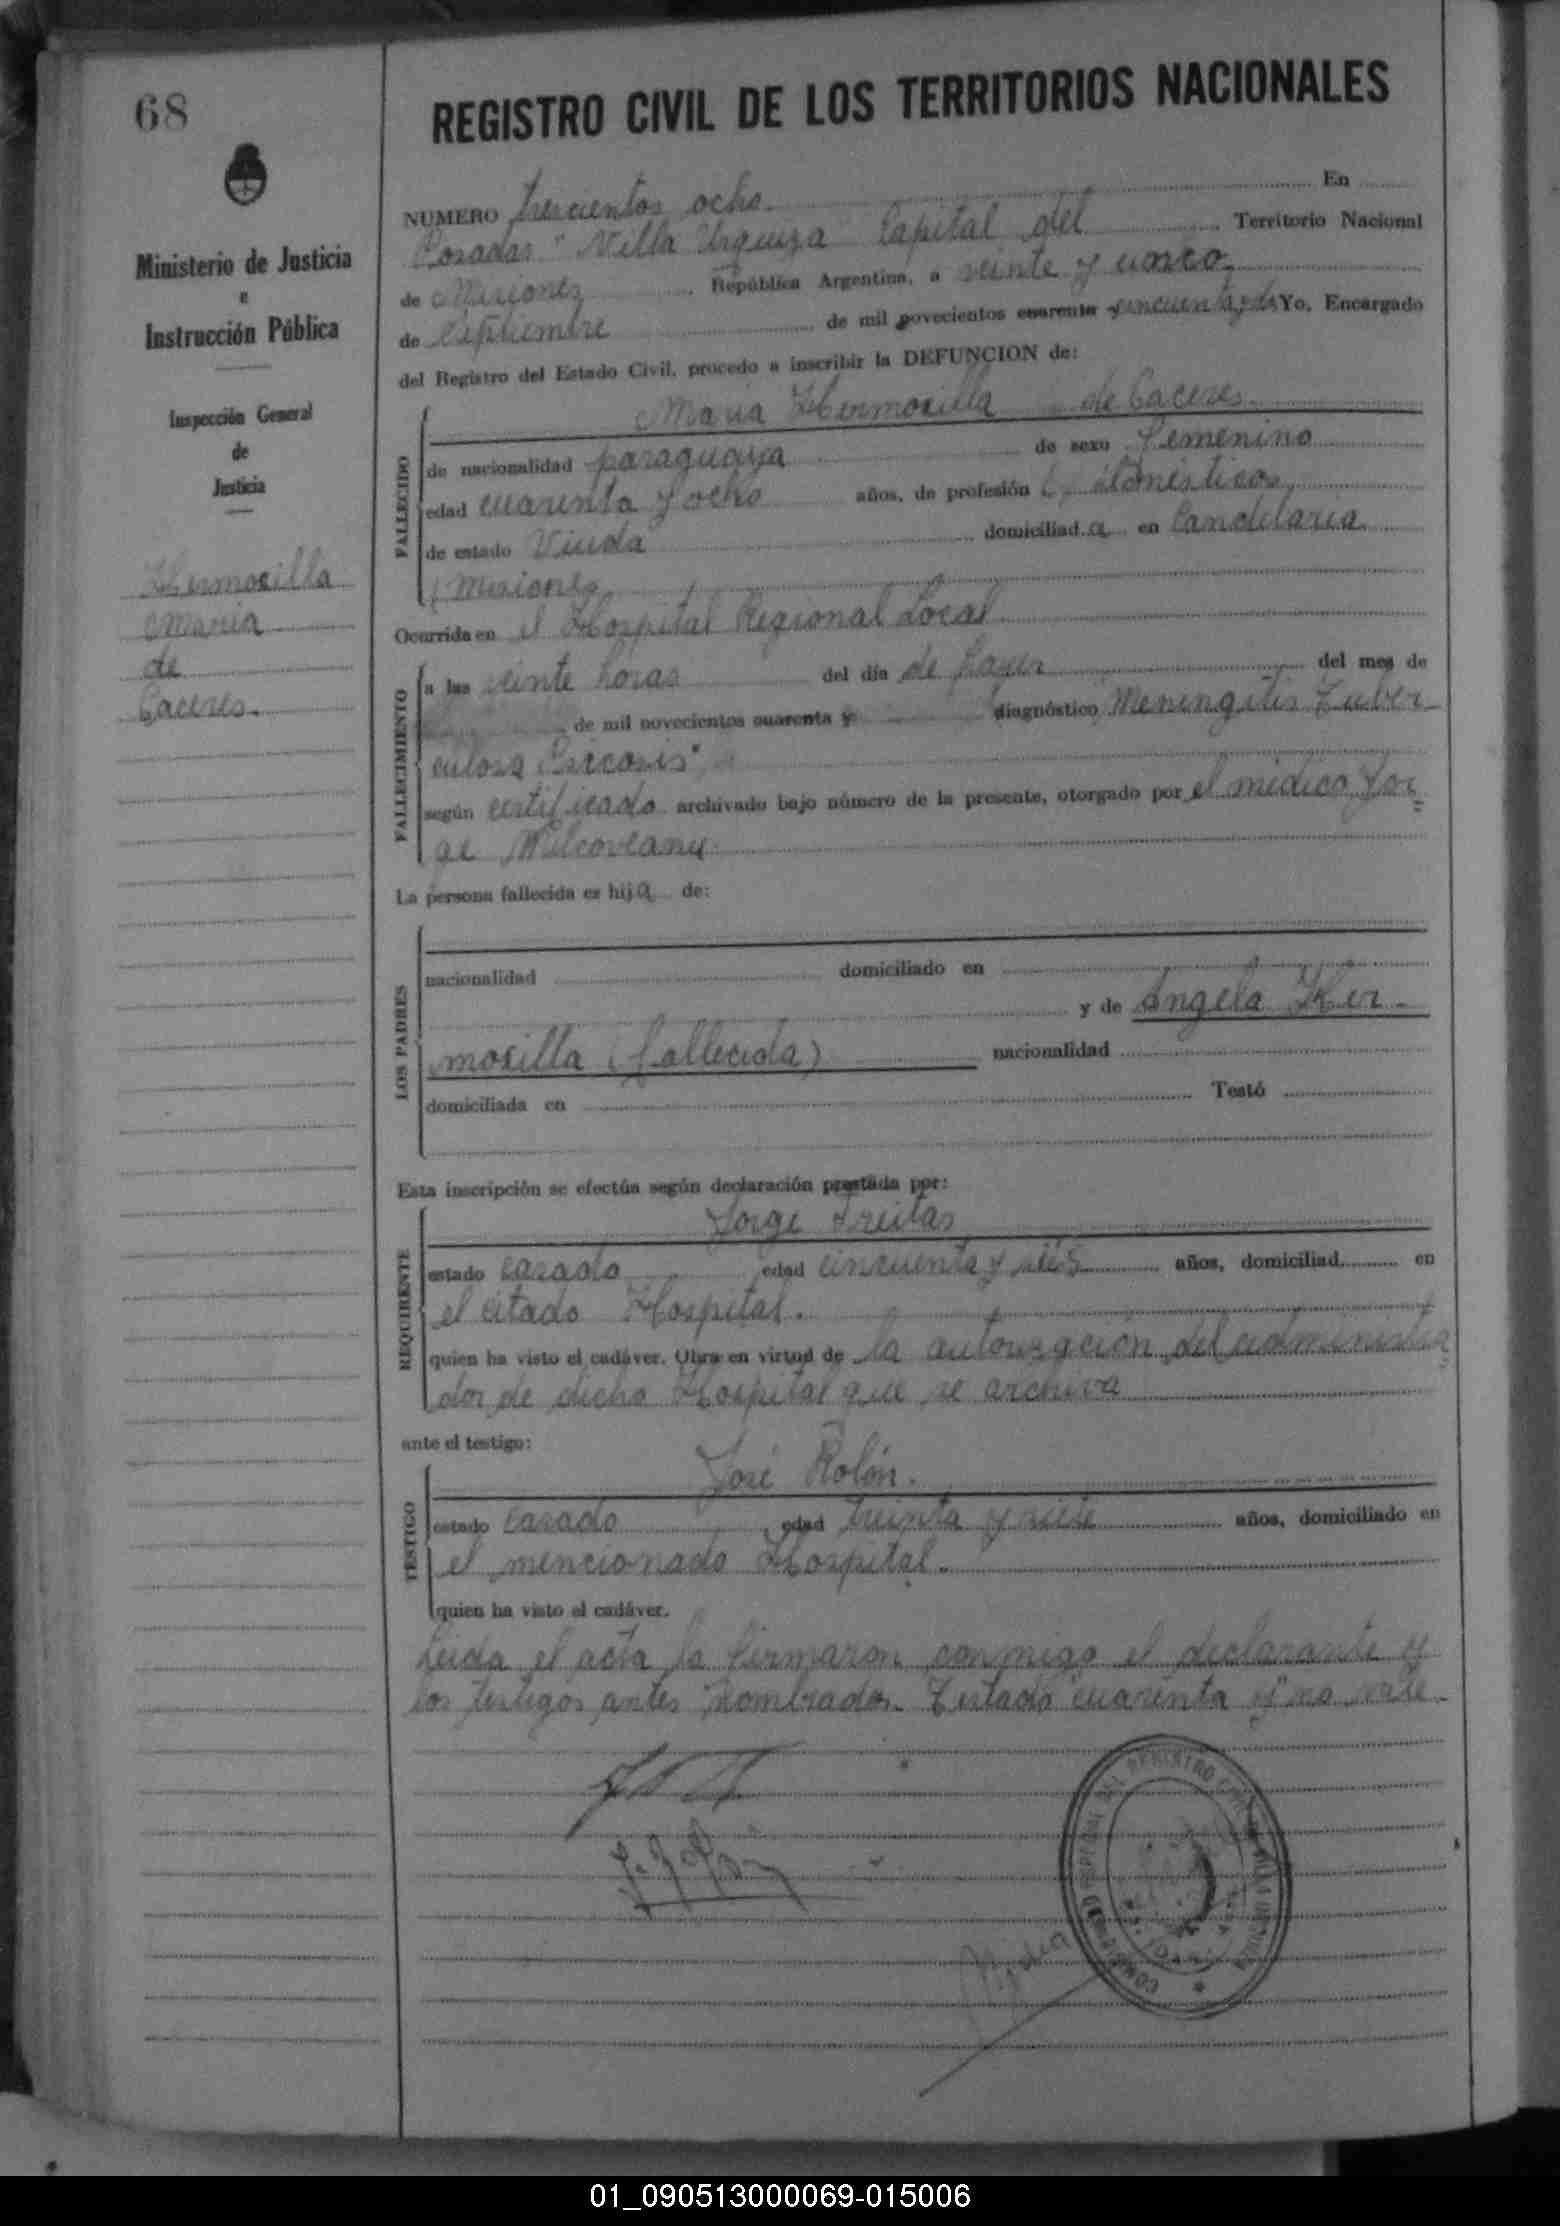 68
REGISTRO CIVIL DE LOS TERRITORIOS NACIONALES
Ministerio de Justicia
e
Instrucción Pública
Inspección General
de
Justicia
Hermosilla
Maria
de
Caceres.
NUMERO trescientos ocho. En
Posadas "Villa Urquiza Capital del Territorio Nacional
de Misiones República Argentina, a veinte y cinco
de Septiembre de mil novecientos cuarenta y cincuenta y Yo, Encargado
del Registro del Estado Civil, procedo a inscribir la DEFUNCION de:
FALLECIDO
Maria Hermosilla de Caceres
de nacionalidad paraguaya de sexo femenino
edad cuarenta y ocho años, de profesión domésticos
de estado Viuda domiciliad a en Candelaria
(Misiones
Ocurrida en el Hospital Regional Local
FALLECIMIENTO
a las veinte horas del día de hayer del mes de
de mil novecientos cuarenta y diagnóstico Meningitis Tuber-
culosa
según certificado archivado bajo número de la presente, otorgado por el médico Jor
ge Milcoveanu
La persona fallecida es hija de:
LOS PADRES
nacionalidad domiciliado en
y de Angela Her-
mosilla (fallecida) nacionalidad
domiciliada en Testó
Esta inscripción se efectúa según declaración prestada por:
REQUIRENTE
Jorge Freitas
estado casado edad cincuenta y seis años, domiciliad en
el citado Hospital.
quien ha visto el cadáver. Obra en virtud de la autorizacion del administra
dor de dicho Hospital que se archiva
ante el testigo:
TESTIGO
José Rolón.
estado casado edad treinta y siete años, domiciliado en
el mencionado Hospital.
quien ha visto el cadáver.
Leida el acta la firmaron conmigo el declarante y
los testigos antes nombrados. Testado "cuarenta y" no vale.
01_090513000069-015006